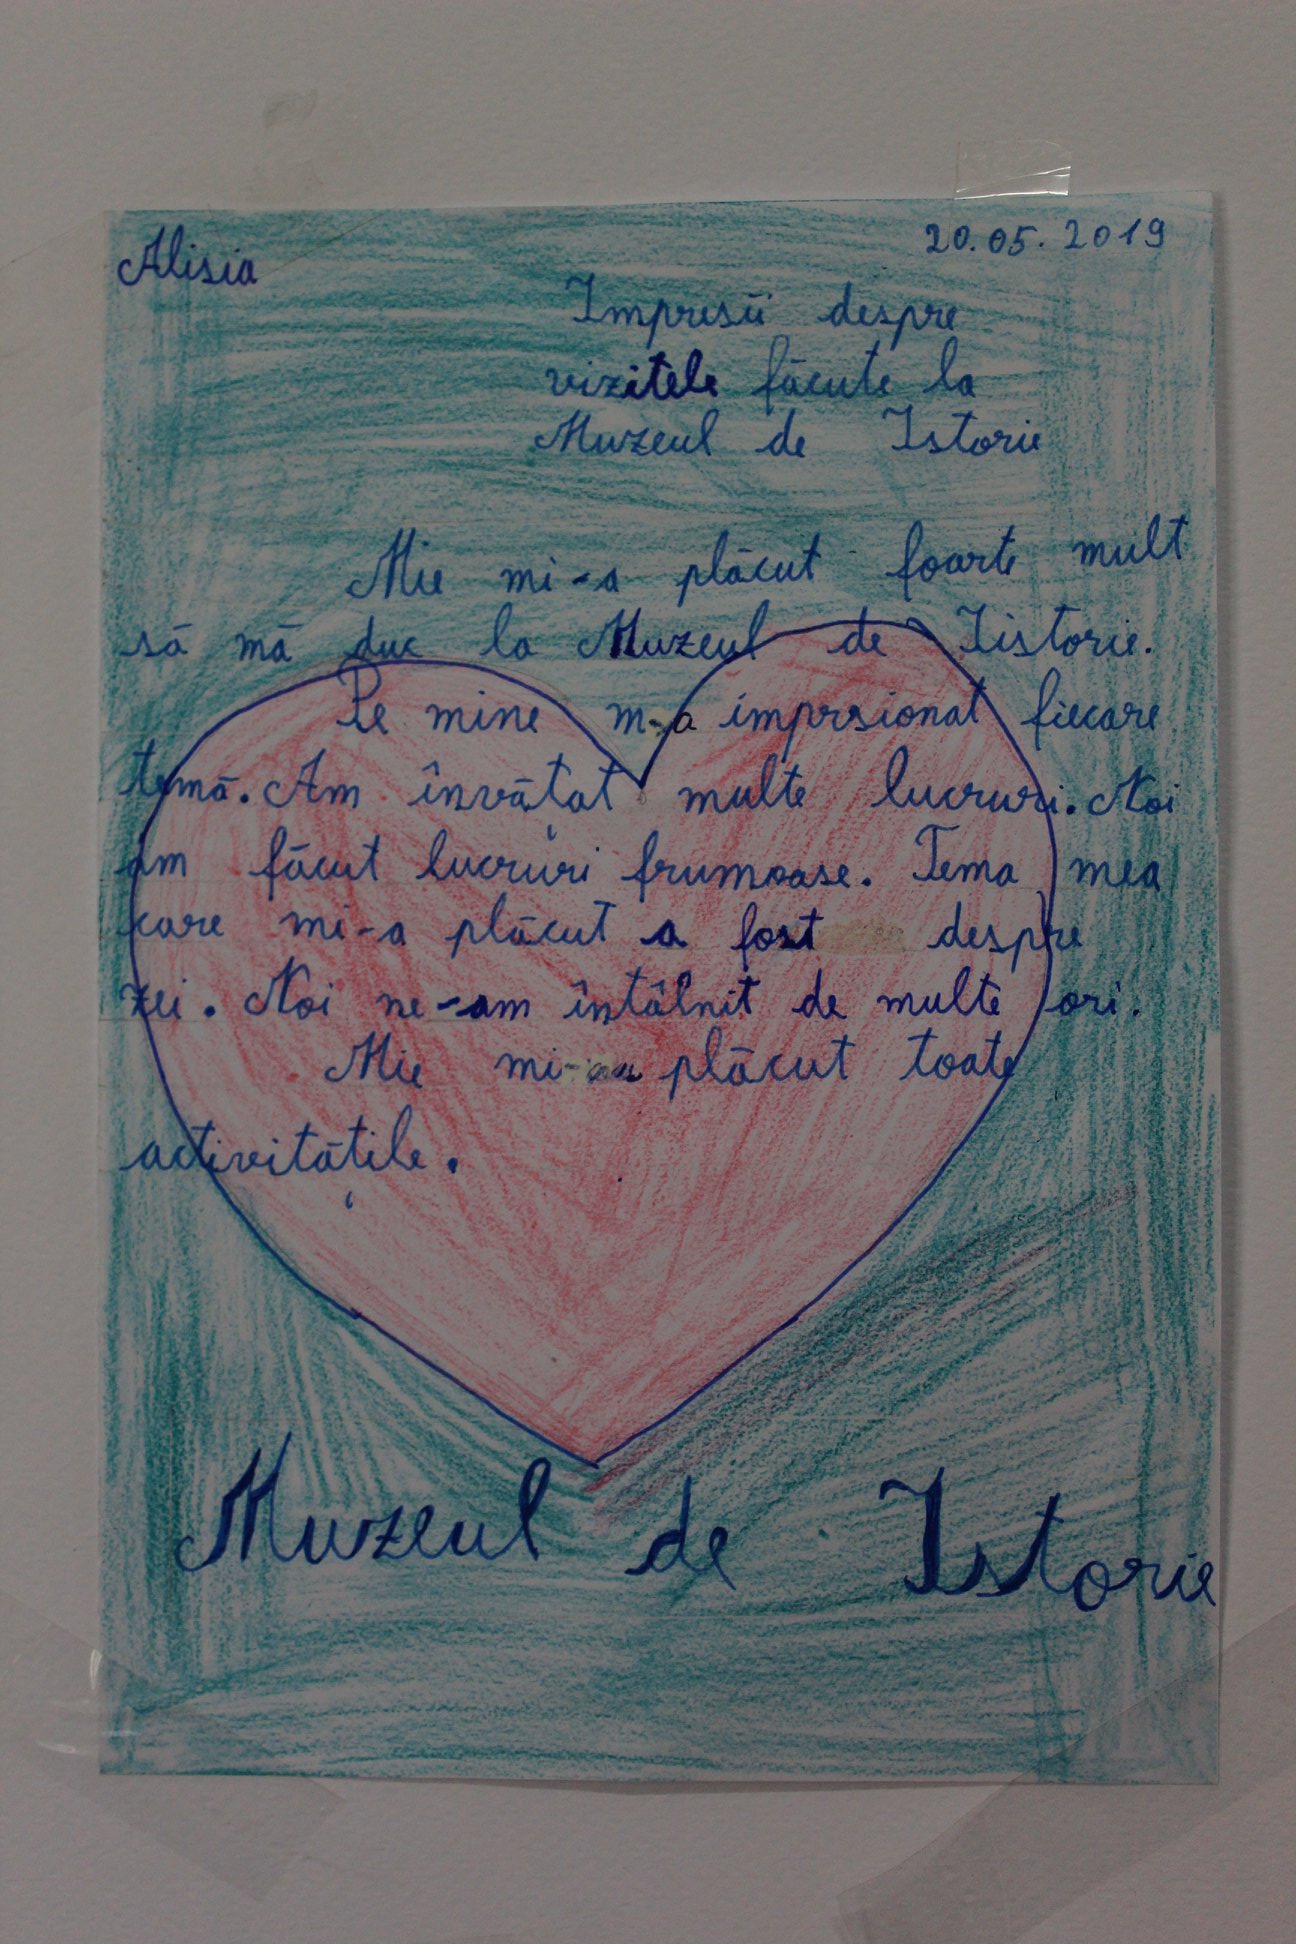 Alisia
20.05.2019
Impresii despre
vizitele făcute la
Muzeul de Istorie
Mie mi-a plăcut foarte mult
să mă duc la Muzeul de Iistorie.
Pe mine m-a imprsionat fiecare
temă. Am învățat multe lucruri. Noi
am făcut lucruri frumoase. Tema mea
care mi-a plăcut a fost despre
zei. Noi ne-am întâlnit de multe ori.
Mie mi-au plăcut toate
activitățile.
Muzeul de Istorie